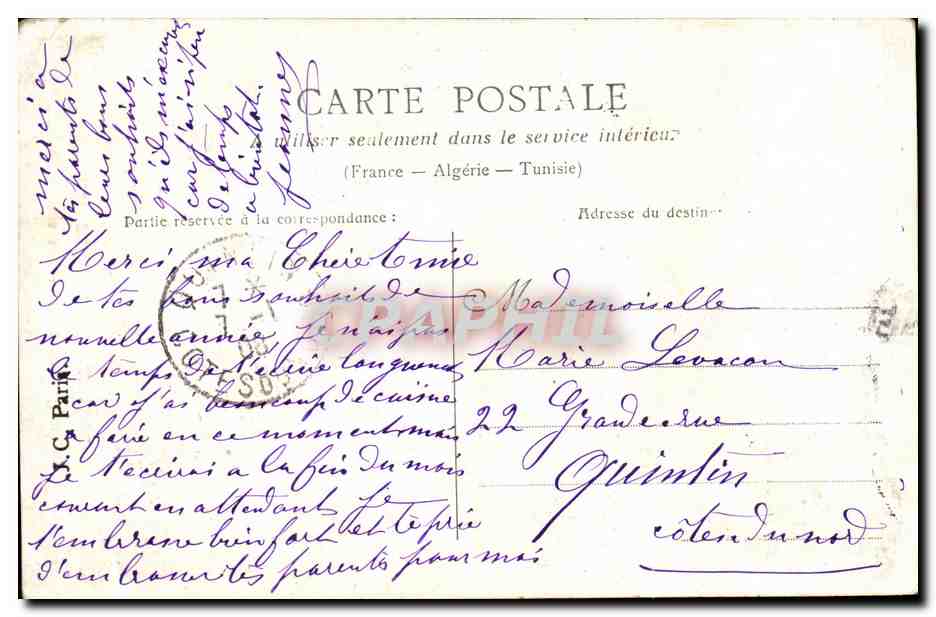 CARTE POSTALE
A utiliser seulement dans le service intérieur
(France — Algérie — Tunisie)
Partie réservée à la correspondance :
Adresse du destin
Merci ma Chère
de tes bons souhaits de
nouvelle année, je n'ai pas
le temps de t'écrire longuement
car j'ai beaucoup de cuisine
a faire en ce moment mais
je t'ecrirai a la fin du mois
courant en attendant je
t'embrasse bien fort et te prie
d'embrasser tes parents pour moi
merci a
tes parents de
leurs bons
souhaits
qu'ils
car j'ai si peu
de temps
a bientot
Mademoiselle
Marie Levacon
22 Grande rue
Quintin
côtes du nord
J.C. Paris
CARPHIL